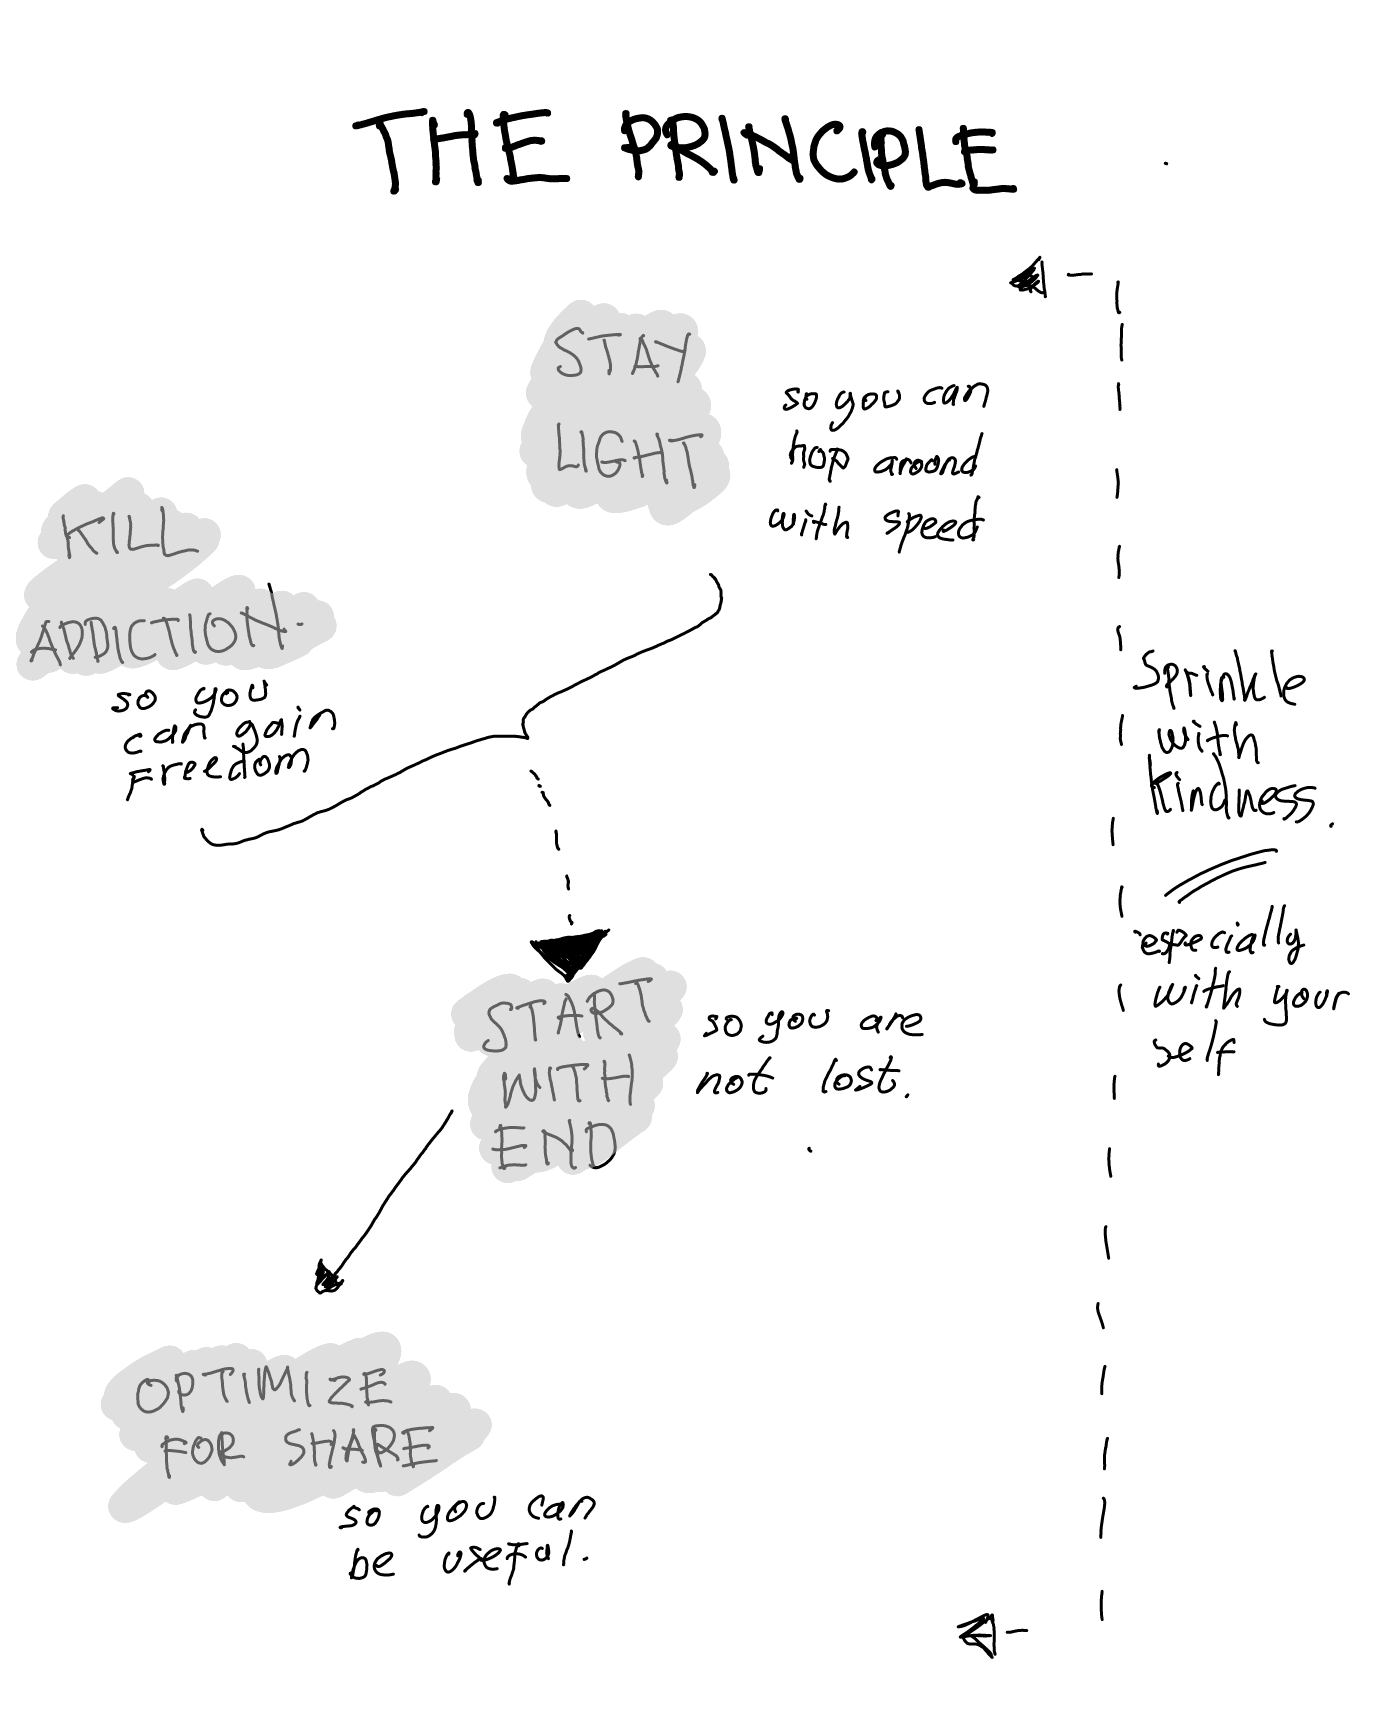 THE PRINCIPLE
STAY
LIGHT
so you can
hop around
with speed
KILL
ADDICTION.
so you
can gain
Freedom
START
WITH
END
so you are
not lost.
OPTIMIZE
FOR SHARE
so you can
be useful.
Sprinkle
with
kindness.
especially
with your
self